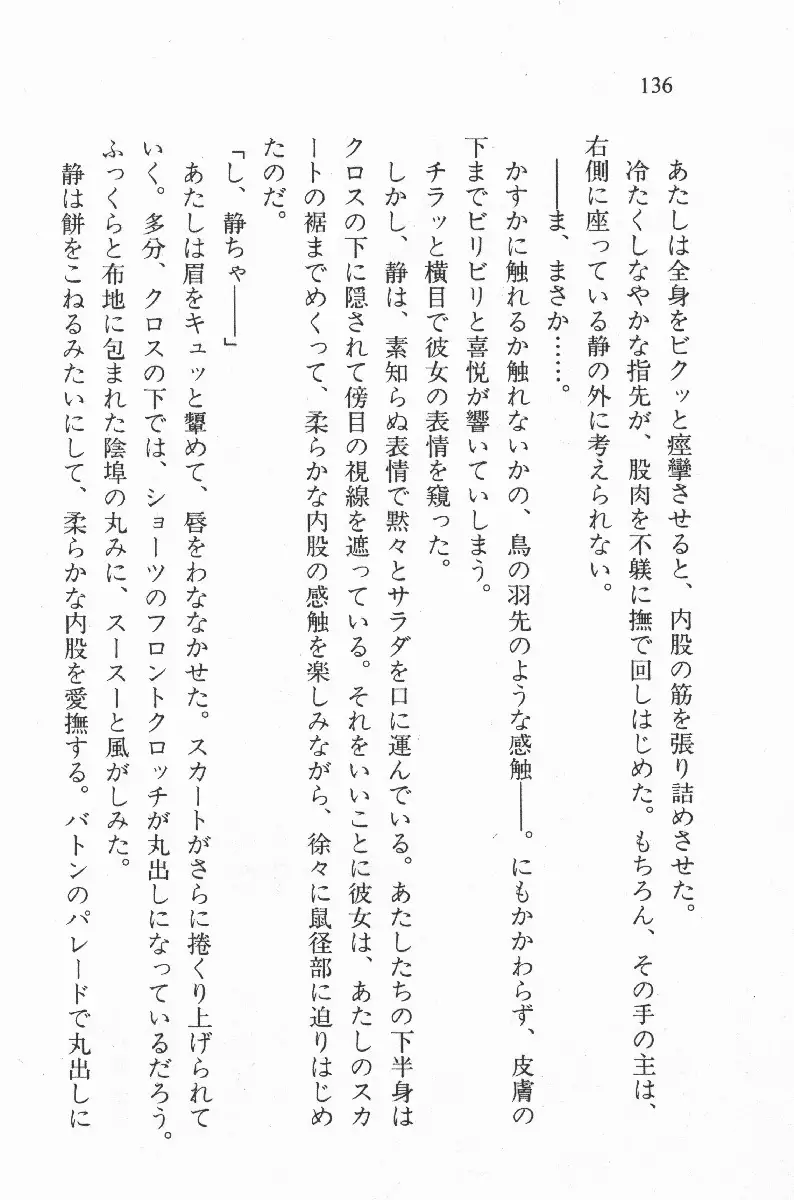 136
あたしは全身をビクッと痙攣させると、内股の筋を張り詰めさせた。
冷たくしなやかな指先が、股肉を不躾に撫で回しはじめた。もちろん、その手の主は、
右側に座っている静の外に考えられない。
――ま、まさか……。
かすかに触れるか触れないかの、鳥の羽先のような感触――。にもかかわらず、皮膚の
下までビリビリと喜悦が響いていしまう。
チラッと横目で彼女の表情を窺った。
しかし、静は、素知らぬ表情で黙々とサラダを口に運んでいる。あたしたちの下半身は
クロスの下に隠されて傍目の視線を遮っている。それをいいことに彼女は、あたしのスカ
ートの裾までめくって、柔らかな内股の感触を楽しみながら、徐々に鼠径部に迫りはじめ
たのだ。
「し、静ちゃ――」
あたしは眉をキュッと顰めて、唇をわななかせた。スカートがさらに捲くり上げられて
いく。多分、クロスの下では、ショーツのフロントクロッチが丸出しになっているだろう。
ふっくらと布地に包まれた陰埠の丸みに、スースーと風がしみた。
静は餅をこねるみたいにして、柔らかな内股を愛撫する。バトンのパレードで丸出しに